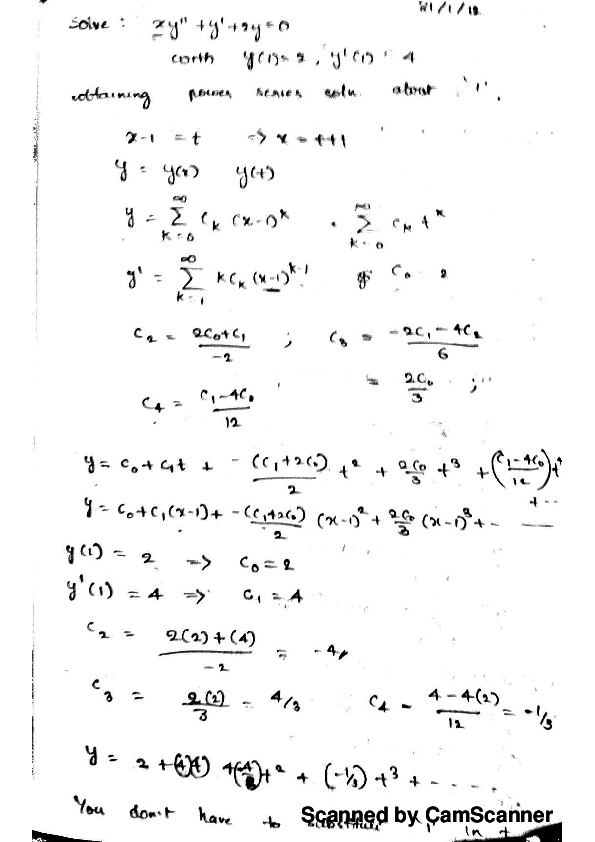 21/1/12
Solve : xy" + y' + 2y = 0
with y(1) = 2, y'(1) = 4
obtaining power series soln. about '1'.
x-1 = t ⇒ x = t+1
y = y(x) y(t)
y = ∑_{k=0}^{∞} C_k (x-1)^k . ∑_{k=0}^{∞} C_k t^k
y' = ∑_{k=1}^{∞} k C_k (x-1)^{k-1} C_0 = 2
C_2 = (2C_0 + C_1)/-2 ; C_3 = (-2C_1 - 4C_2)/6
= 2C_0/3 ;
C_4 = (C_1 - 4C_0)/12
y = C_0 + C_1t + -(C_1+2C_0)/2 t^2 + 2C_0/3 t^3 + ((C_1-4C_0)/12) t^4
+ ...
y = C_0 + C_1(x-1) + -(C_1+2C_0)/2 (x-1)^2 + 2C_0/3 (x-1)^3 + -
y(1) = 2 ⇒ C_0 = 2
y'(1) = 4 ⇒ C_1 = 4
C_2 = (2(2)+(4))/-2 = -4
C_3 = 2(2)/3 = 4/3 C_4 = (4-4(2))/12 = -1/3
y = 2 + t^2 + (-1/3) t^3 + - ....
You don't have to in t
Scanned by CamScanner